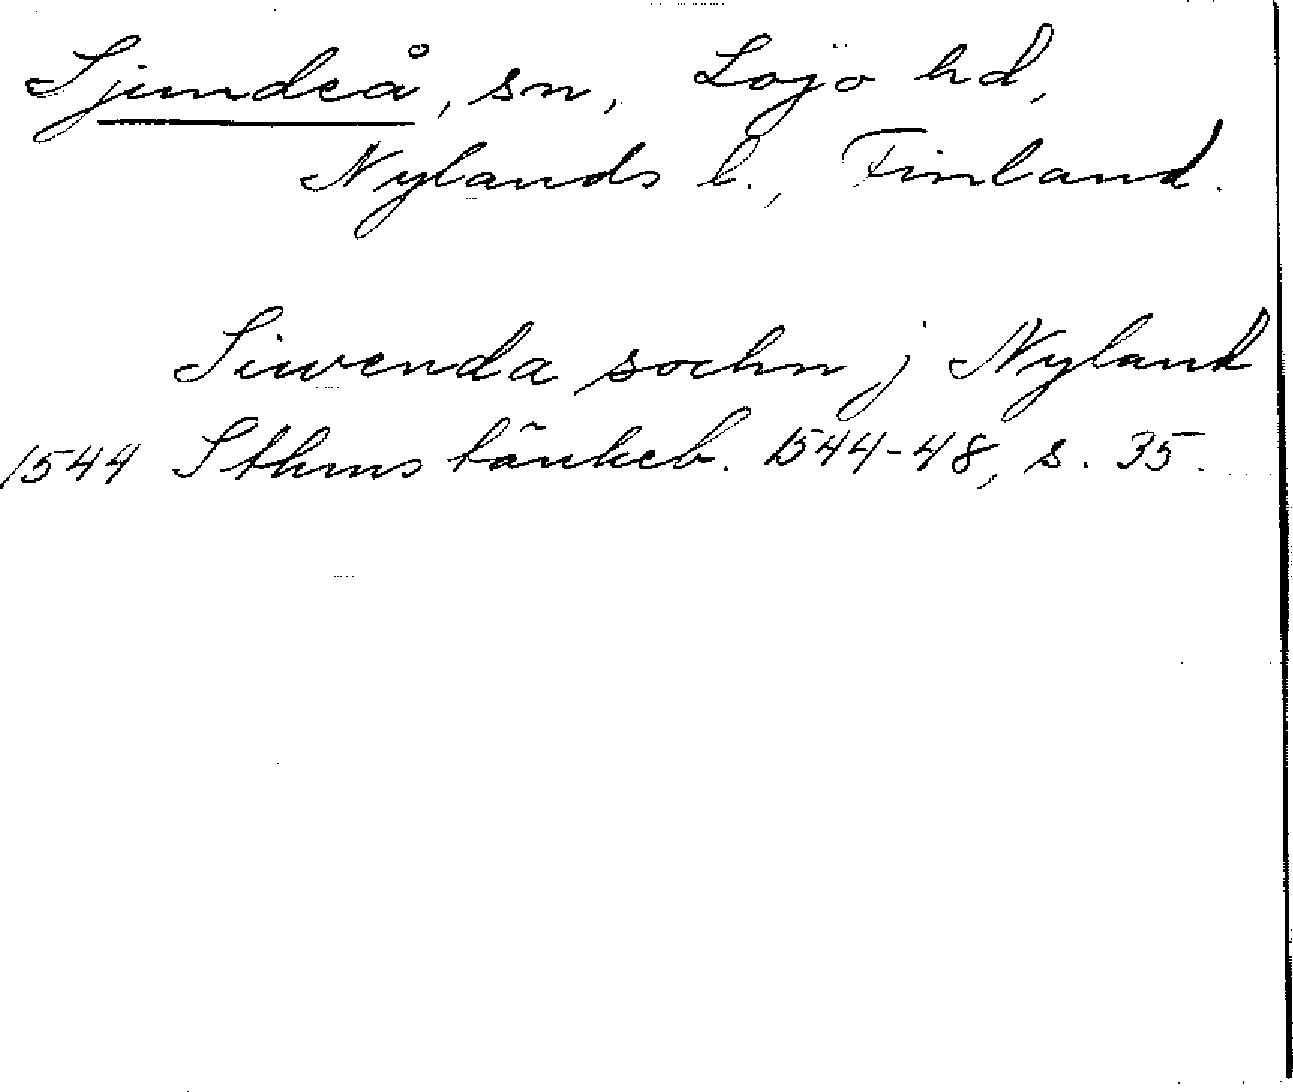 Sjundeå, sn, Lojo hd,
Nylands l., Finland.
Siwenda sochn j Nyland
1544 Sthms tänkeb. 1544-48, s. 35.